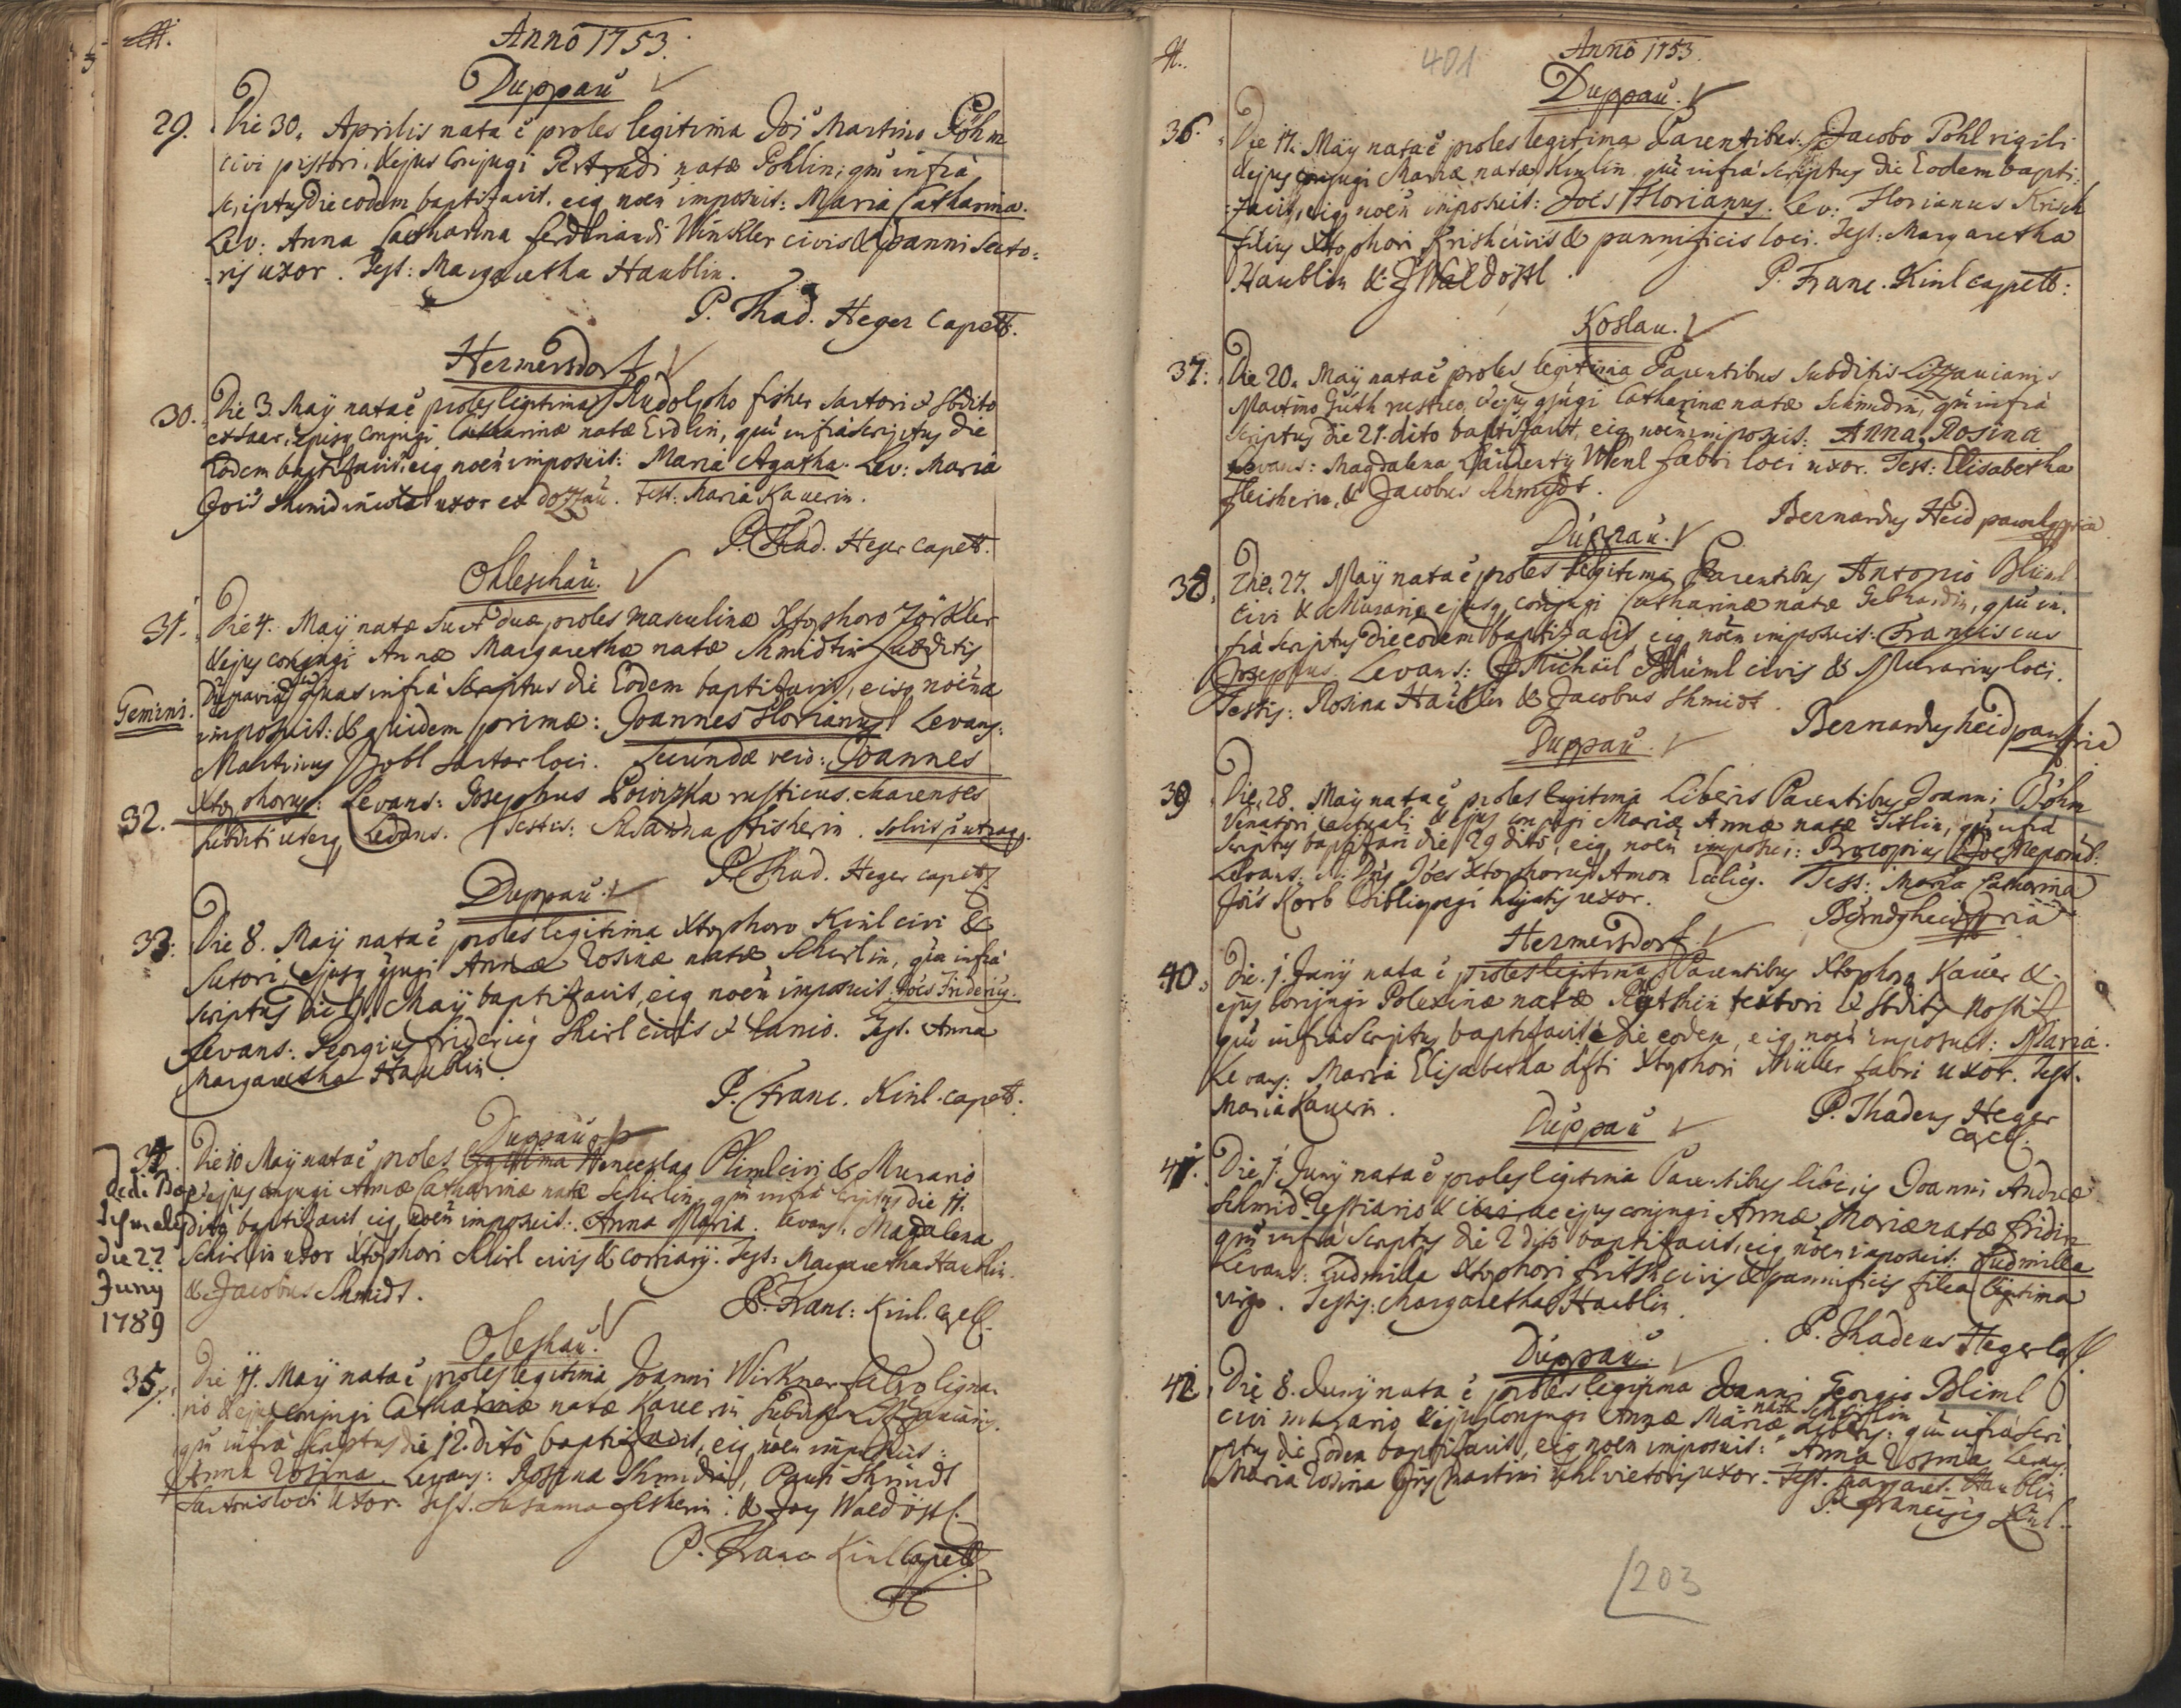 N.
Anno 1753.
Duppau
29. Die 30. Aprilis nata ẽ proles legitima Jõi Martino Böhm
civi pistori, & ejus Conjugi Gertrudi natæ Pohlin; qm̃ infrà
scriptus die eodem baptizavit. eiq noẽn imposuit: Maria Catharina.
Lev: Anna Catharina Ferdinandi Winkler civis & panni sciso=
=ris uxor. Test: Margaretha Haublin.
P. Thad. Heger Capell.
Hermersdorf
30. Die 3. Maÿ nata ẽ proles legitima Rudolpho fisher sartori & sbdito
ejusq Conjugi Catharinæ natæ Erdlin, quã infrascriptus die
Eodem baptizavit, eiq noẽn imposuit: Maria Agatha. Lev: Maria
Jois Shmid uxor ex Test: Maria Kauerin.
P. Thad. Heger Capell.
Ohleschau.
31. Die 4. Maÿ natæ sunt duæ proles masculinæ Xtophoro Zörkler
& ejus conjugi Annæ Margarethæ natæ Shmidtin subditis
quas infrà scriptus die Eodem baptizavit, eisq noẽna
Gemini.
imposuit: & quidem primæ: Joannes Florianus Levans:
Martinus Bobl sartor loci. Secundæ verò: Joannes
32. Xtophorus: Levans: Josephus rusticus. Marenses
subditi uterq Levans. Testis: Susanna fisherin.
P. Thad. Heger Capell.
Duppau.
33: Die 8. Maÿ nata ẽ proles legitima Xtophoro Kinl civi &
Sutori, ejusq cjugi Annæ Rosinæ natæ Scherlin, qm̃ infrà
scriptus die Maÿ baptizavit, eiq noẽn imposuit: Joẽs Fridericus.
Levans: Georgius fridericus Sherl civis & lanio. Test. Anna
Margaretha Haublin.
P. Franc. Kinl. capell.
Duppau
34. Die 10 Maÿ nata ẽ proles legitima Wenceslao Plimlcivi & Murario
& ejus conjugi Annæ Catharinæ natæ Scherlin, qm̃ infrà scriptus die 11.
dito baptizavit, eiq noẽn imposuit: Anna Maria. Levans: Magdalena
Scherlin uxor Xtophori Scherl civis & corriarÿ. Test: Margaretha Haublin
& Jacobus Shmidt.
P. Franc: Kinl. Capell.
die 22
Juny
1789
Oleshau.
35. Die 11. Maÿ nata ẽ proles legitima Joanni Wirkner fabro ligna-
rio & ejus conjugi Catharinæ natæ Kauerin subditis
qm̃ infrà scriptus die 12. ditò baptizavit, eiq noẽn imposuit:
Anna Rosina. Levans: Rosina Shmidin, Pauli Shmidt
Sartoris loci uxor. Test. Susanna fisherin: & Joẽs Waldöstl.
P. Franc Kinl Capell
N.
401
Anno 1753.
Duppau.
36. Die 17. Maÿ nata ẽ proles legitima Parentibus: Jacobo Pohl vigili
& ejus conjugi Mariæ natæ Kinlin quẽ infrà scriptus die Eodem bapti:
=zavit, eiq noẽn imposuit: Joẽs Florianus. Lev: Florianus Krisch
filius Xtophori Krish civis & pannificis loci. Test: Margaretha
Haublin & J. Waldöstl.
P. Franc. Kinl capell:
Koslau.
37: Die 20. Maÿ nata ẽ proles legitima Parentibus Subditis
Martino Guth rustico, & ejus cjugi Catharinæ natæ Schmidin, qm̃ infrà
scriptus die 21. dito baptizavit, eiq noẽn imposuit: Anna Rosina
Levans: Magdalena Laurentÿ Wenl fabri loci uxor. Test: Elisabetha
fleisherin, & Jacobus Shmidt.
Bernardus Heid
Duppau.
38. Die 27. Maÿ nata ẽ proles legitima Parentibus Antonio Bliml
Civi & Murario ejusq conjugi Catharinæ natæ Gebhardin, quẽ in-
frà scriptus die eodem baptizavit eiq noẽn imposuit: Franciscus
Josephus. Levans: Michäel Blüml civis & Murarius loci.
Testis: Rosina Haublin & Jacobus Shmidt.
Bernardus heid
Duppau
39. Die 28. Maÿ nata ẽ proles legitima Liberis Parentibus Joanni Böhm
Venatori & ejus conjugi Mariæ Annæ natæ Titlin, quẽ infrà
scriptus baptizavi die 29 ditò, eiq noẽn imposui: Procopius Joẽs Nepom:
Levans. Dns Joẽs Xtophorus Amon Test: Maria Catharina
Jois Korb Bibliopegi hujatis uxor.
Hermersdorf
40. Die 1. Junÿ nata ẽ proles legitima Parentibus Xtophoro Kauer &
ejus conjugi Polexinæ natæ textori & sbditis
quã infrascriptus baptizavit die eodem, eiq noẽn imposuit: Maria.
Levans: Maria Elisabetha dfti Xtophori Müller fabri uxor. Test.
Maria Kauerin.
P. Thadeus Heger
Capell.
Duppau
41. Die 1. Junÿ nata ẽ proles legitima Parentibus liberis Joanni Andreæ
Schmid Vestiario & civi ac ejus conjugi Annæ Mariæ natæ fridin
qm̃ infrà scriptus die 2 ditò baptizavit, eiq noẽn imposuit: Ludmilla
Levans: Ludmilla Xtophori fritsh civis & pannificis filia legitima
virgo. Testis: Margaretha Haublin
P. Thadeus Heger Capell.
Duppau.
42. Die 8. Junÿ nata ẽ proles legitima Joanni Georgio Bliml
civi murario & ejus conjugi Annæ Mariæ natæ Scherlin liberis: qm̃ infrà scri
ptus die Eodem baptizavit, eiq noẽn imposuit: Anna Rosina Levans
Maria Rosina Martini Uhl vietoris uxor. Test. Margaret. Haublin
P. Franciscus Kinl.
203